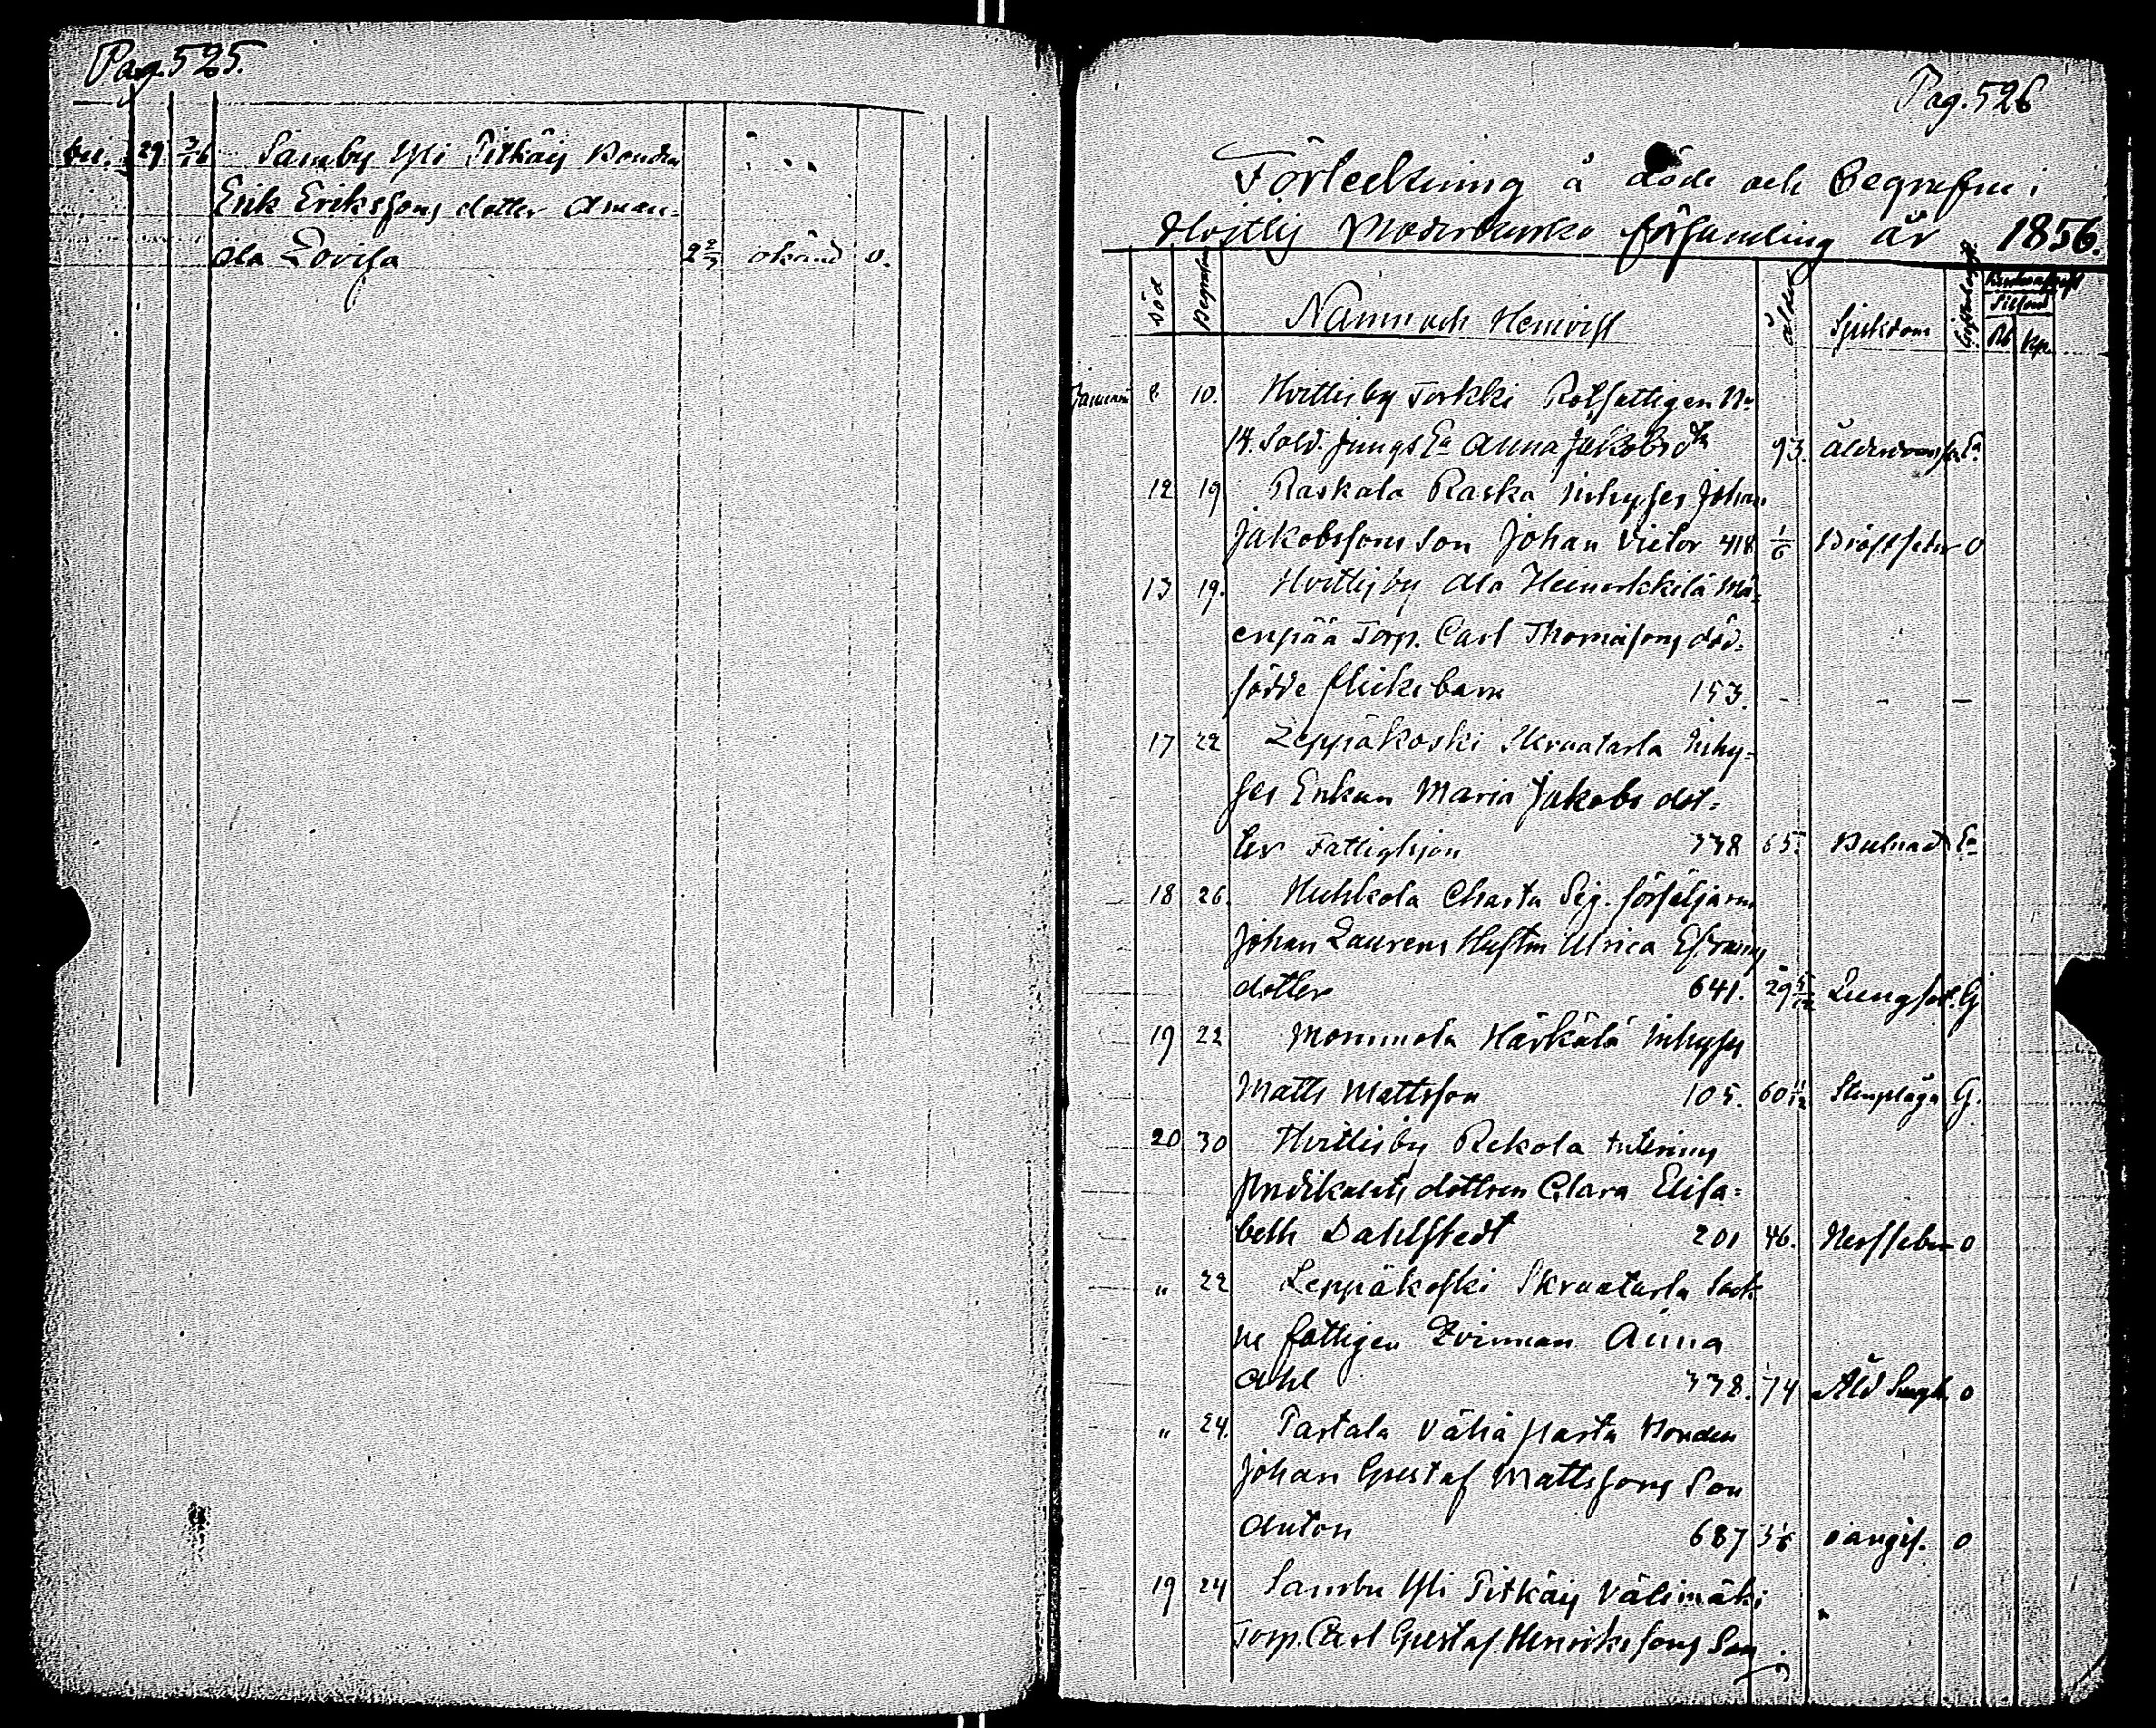 Pag. 525.
29 Samby Yli Pitkäij Bonden
Erik Erikssons dotter Aman=
da Lovisa 2 2/3 okänd o.
Pag. 526
Förteckning å döde och Begrafne i
Moderkyrko församling år 1856.
Död Namn och Hemvist Ålder Sjukdom
Rb Kp.
Januari 8 10. Hvittisby Torkki Rotfattigen No
14. Sold. Jungs Ea Anna Jakobsdtr 93. Ålderdoms Ea
12 19 Raskala Raska Inhyses Johan
Jakobssons Son Johan Victor 418 1/6 Bröstfeber O
13 19. Hvittisby Ala Heinerkkilä Mä=
enpää Torp. Carl Thomassons död=
födde flickebarn 153. - - -
17 22 Leppäkoski Skraatarla Inhy=
ses Enkan Maria Jakobs dot=
ter Fattighjon 338 65. Bulnad Ea
18 26. Huhkola Charta Seg. försäljaren
Johan Laurens Hustru Ulrica Efraims
dotter 641. 29 5/12 Lungsot. G
19 22 Mommola Härkälä Inhyses
Matts Mattsson 105. 60 11/12 Stenplåga G.
20 30 Hvittisby Rekola
Predikants dottren Clara Elisa=
beth Dahlstedt 201 46. Nerffeber o
" 22 Leppäkoski Skraatarla Sock
ne fattigen Qvinnan Anna
Ahl 338. 74 o
" 24. Pastala Vähä Pasta Bonden
Johan Gustaf Mattssons Son
Anton 687 oangif. o
19 24 Sambu Yli Pitkäij Välimäki
Torp. Carl Gustaf Henrikssons Son